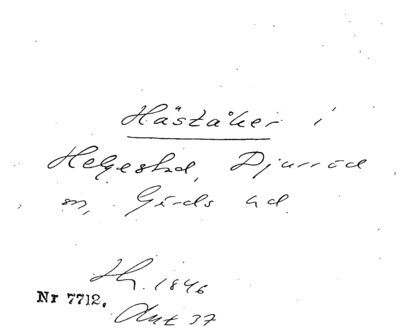 Häståker i
Helgestad, Djurröd
sn, Gärds hd.
Hh. 1846
Nr 7712.
Ant 37